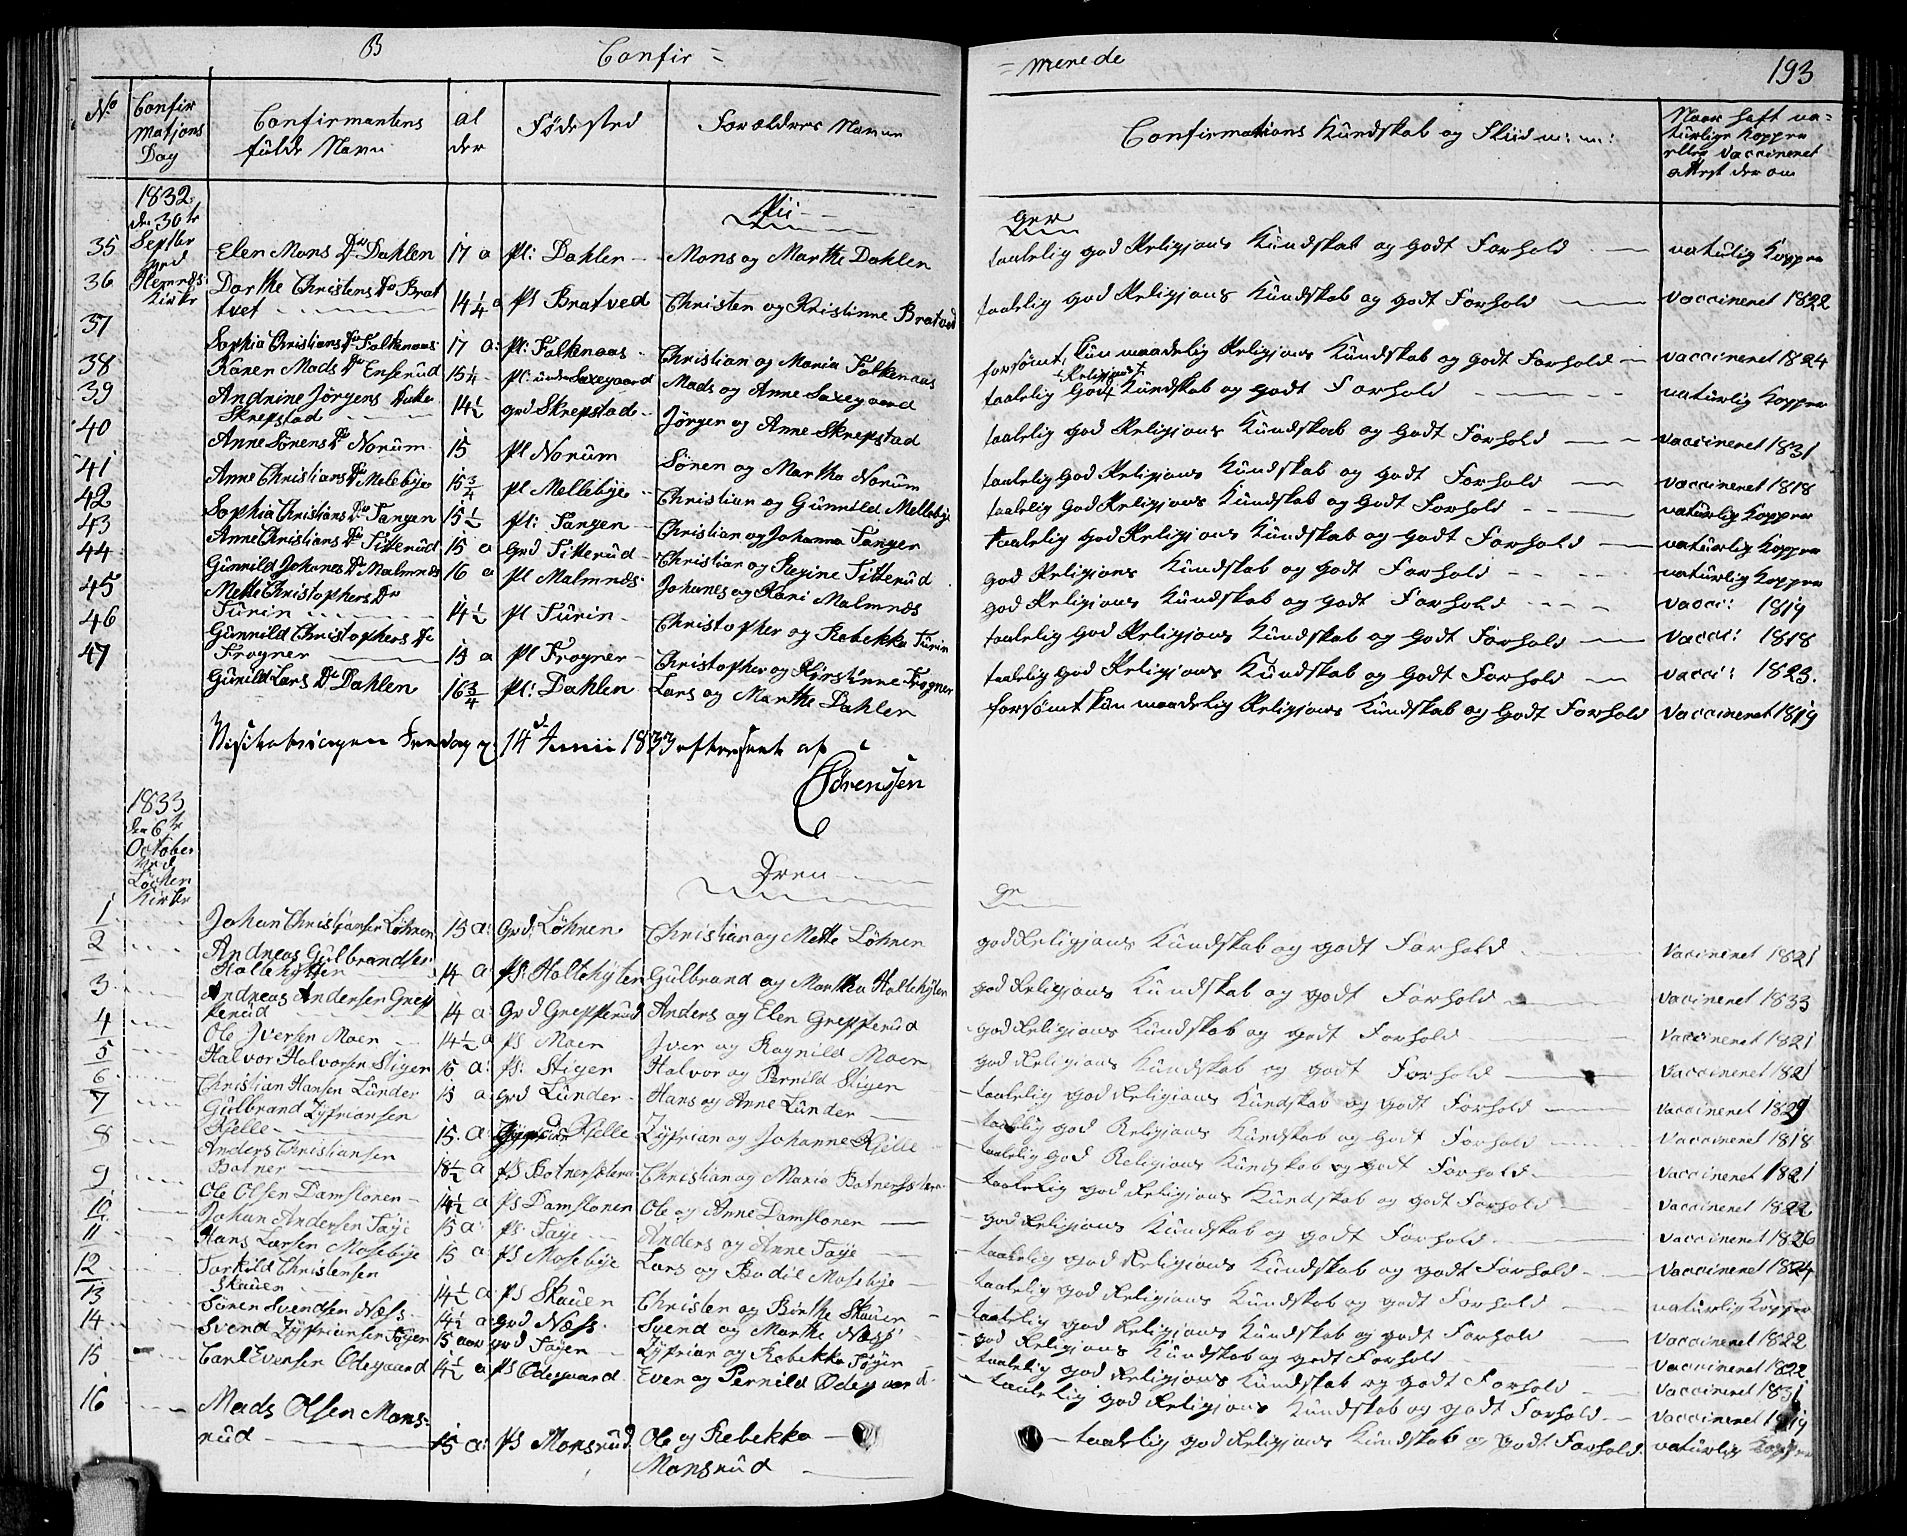 B Confir = = merede 193
No Confir Matjons Dag Confirmantens fulde Navn al der Fødested Forældres Navne Confirmations Kundskab og Fliid m: m: Naar haft na= turlige Kopper eller Vaccineret attest der om
1832 den 30te Septbr ved Hemnæs Kirke Pii - - ger
35 Elen Mons Dr Dahlen 17 a Pl: Dahlen Mons og Marthe Dahlen taalelig god Religions Kundskab og godt Forhold naturlig Kopper
36 Dorthe Christens Dr Brat tvet 14 1/4 a Pl Bratved Christen og Kristinne Bratved taalelig god Religions Kundskab og godt Forhold Vaccineret 1822
37 Sophia Christians Dr Falkenaas 17 a: Pl: Falkenaas Christian og Maria Falkenaas forsømt, kun maadelig Religions Kundskab og godt Forhold Vaccineret 1824
38 Karen Mads Dr Enserud 15 1/4 Pl: under Saxegaard Mads og Anne Saxegaard taalelig God Religions Kundskab og godt Forhold naturlig Kopper
39 Andrine Jørgens Datter Skrepstad 14 1/2 grd Skrepstad Jørgen og Anne Skrepstad taalelig god Religions Kundskab og godt Forhold Vaccineret 1831
40 Anne Sørens Dr Norum 15 Pl Norum Søren og Martha Norum taalelig god Religions Kundskab og godt Forhold Vaccineret 1818
41 Anne Christians Dr Melebye 15 3/4 Pl Mellebye Christian og Gunnild Mellebye taalelig God Religions Kundskab og Godt Forhold naturlig Kopper
42 Sophia Christians Dr Tangen 15 1/2 Pl: Tangen Christian og Johanna Tangen taalelig god Religions Kundskab og godt Forhold naturlig Kopper
43 Anne Christians Dr Titterud 15 a Grd Titterud Christian og Regine Titterud god Religions Kundskab og godt Forhold naturlig Kopper
44 Gunnild Johanes Dr Malmnæs 16 a Pl Malmnæs Johanes og Kari Malmnæs god Religions Kundskab og godt Forhold Vacci: 1819
45 Mette Christophers Dr Turin 14 1/2 Pl Turin Christopher og Rebekka Turin taalelig god Religions Kundskab og godt Forhold Vacci: 1818
46 Gunnild Christophers Dr Frogner 15 a Pl Frogner Christopher og Kirstinne Frogner taalelig god Religions Kundskab og Godt Forhold Vacci: 1823.
47 Gunild Lars Dr Dahlen 16 3/4 Pl: Dahlen Lars og Marthe Dahlen forsømt kun maadelig Religions Kundskab og Godt Forhold Vaccineret 1819
14d Junii 1833 efterseet af
Sørenssen
1833 den 6te October ved Løcken Kirke Dren ge
1 Johan Christiansen Løhnen 15 a: Grd: Løhnen Christian og Mette Løhnen god Religions Kundskab og godt Forhold Vaccineret 1821
2 Andreas Gulbrandsen Holtehytten 14 a: Pl: Holtehyten Gulbrand og Marthia Holtehyten god Religions Kundskab og godt Forhold Vaccineret 1833
3 Andreas Andersen Grep perud 14 a Grd Grepperud Anders og Elen Grepperud god Religions Kundskab og godt Forhold Vaccineret 1821
4 Ole Iversen Moen 14 1/2 a Pl Moen Iver og Ragnild Moen god Religions Kundskab og godt Forhold Vaccineret 1821
5 Halvor Halvorsen Stigen 15 a: Pl: Stigen Halvor og Pernild Stigen taalelig god Religions Kundskab og godt Forhold Vaccineret
6 Christian Hansen Lunder 15 a grd Lunder Hans og Anne Lunder taalelig god Religions Kundskab og godt Forhold Vaccineret 1818
7 Gulbrand Zypriansen Kjelle 15. a Kjelle Zyprian og Johanne Kjelle taalelig god Religions Kundskab og godt Forhold Vaccineret 1821
8 Anders Christiansen Botner 18 1/2 a Pl Botnerseteren Christian og Maria Botnerseteren taalelig god Religions Kundskab og godt Forhold Vaccineret 1822
9 Ole Olsen Damslonen 14 1/2 a Pl Damslonen Ole og Anne Damslonen god Religions Kundskab og godt Forhold Vaccineret 1826
10 Johan Andersen Toye 15 a: Pl: Toye Anders og Anne Toye taalelig god Religions Kundskab og godt Forhold Vaccineret 1824
11 Hans Larsen Mosebye 15 a: Pl Mosebye Lars og Bodil Mosebye taalelig god Religions Kundskab og godt Forhold naturlig Kopper
12 Torkild Christensen Skauen 14 1/2 a Pl Skauen Christen og Birthe Skauen taalelig god Religions Kundskab og godt Forhold Vaccineret 1822
13 Søren Svendsen Næss 14 1/2 a grd Næss Svend og Marthe Næss god Religions Kundskab og godt Forhold Vaccineret 1822
14 Svend Zyprianser Tøyen 15 aar grd Tøyen Zyprian og Rebekka Tøyen taalelig god Religions Kundskab og godt Forhold Vaccineret 1831
15 Carl Evensen Ødegaard 14 1/2 a Pl Ødegaard Even og Pernild Ødegaard taalelig god Religions Kundskab og godt Forhold Vaccineret 1819
16 Mads Olsen Mons- rud 15 a: Pl Monsrud Ole og Rebekka Monsrud taalelig god Religions Kundskab og godt Forhold. naturlig Kopper